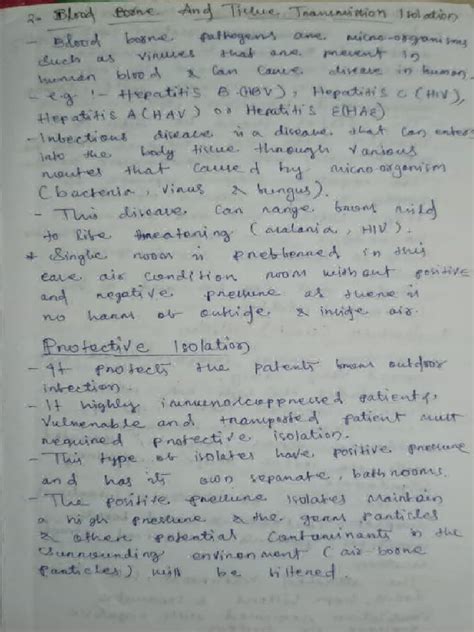 2- Blood Borne And Tissue Transmission Isolation
- Blood borne pathogens are micro-organisms
such as viruses that are present in
human blood & can cause disease in human.
- e.g :- Hepatitis B (HBV), Hepatitis C (HIV),
Hepatitis A (HAV) or Hepatitis E (HAE)
- Infectious disease is a disease that can enter
into the body tissue through various
routes that caused by micro-organism
(bacteria, virus & fungus).
- This disease can range from mild
to life threatening (malaria, HIV).
* Single room is preferred in this
case air condition room without positive
and negative pressure as there is
no harm of outside & inside air.
Protective Isolation
- It protects the patents from outdoor
infection.
- It highly immunosuppressed patients,
vulnerable and transposted patient must
required protective isolation.
- This type of isolates have positive pressure
and has its own separate, bathrooms.
- The positive pressure isolates maintain
a high pressure & the germ particles
& others potential contaminants in the
surrounding environment (air-borne
particles) will be filtered.